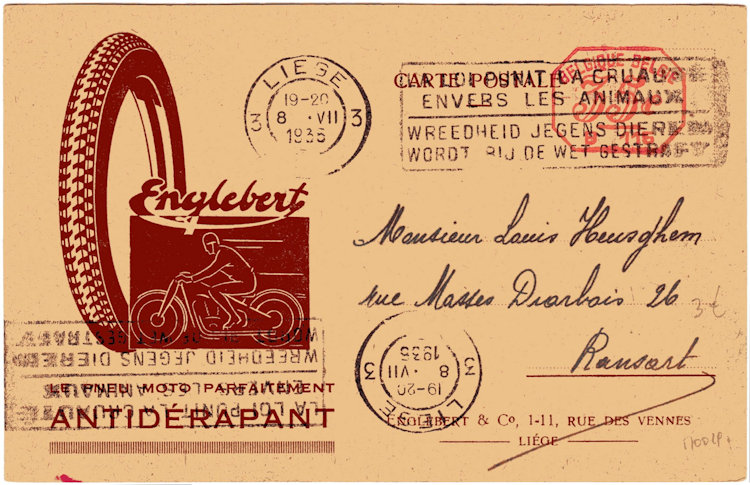 Englebert
LE PNEU MOTO PARFAITEMENT
ANTIDÉRAPANT
LIEGE
19-20
8 · VII
1935
3 3
CARTE POSTALE
LA LOI PUNIT LA CRUAUTE
ENVERS LES ANIMAUX
WREEDHEID JEGENS DIEREN
WORDT BIJ DE WET GESTRAFT
BELGIQUE BELGIE
35
Monsieur Louis Heusghem
rue Masses Diarbois 26
Ransart
3 €
LIEGE
19-20
8 VII
1935
3 3
LA LOI PUNIT LA CRUAUTE
ENVERS LES ANIMAUX
WREEDHEID JEGENS DIEREN
WORDT BIJ DE WET GESTRAFT
ENGLEBERT & Co, 1-11, RUE DES VENNES
LIÉGE